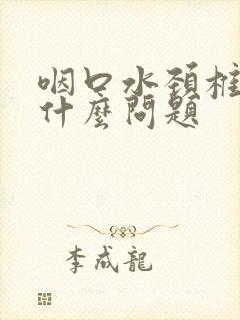 咽口水頚椎
什麼問題
李成龍